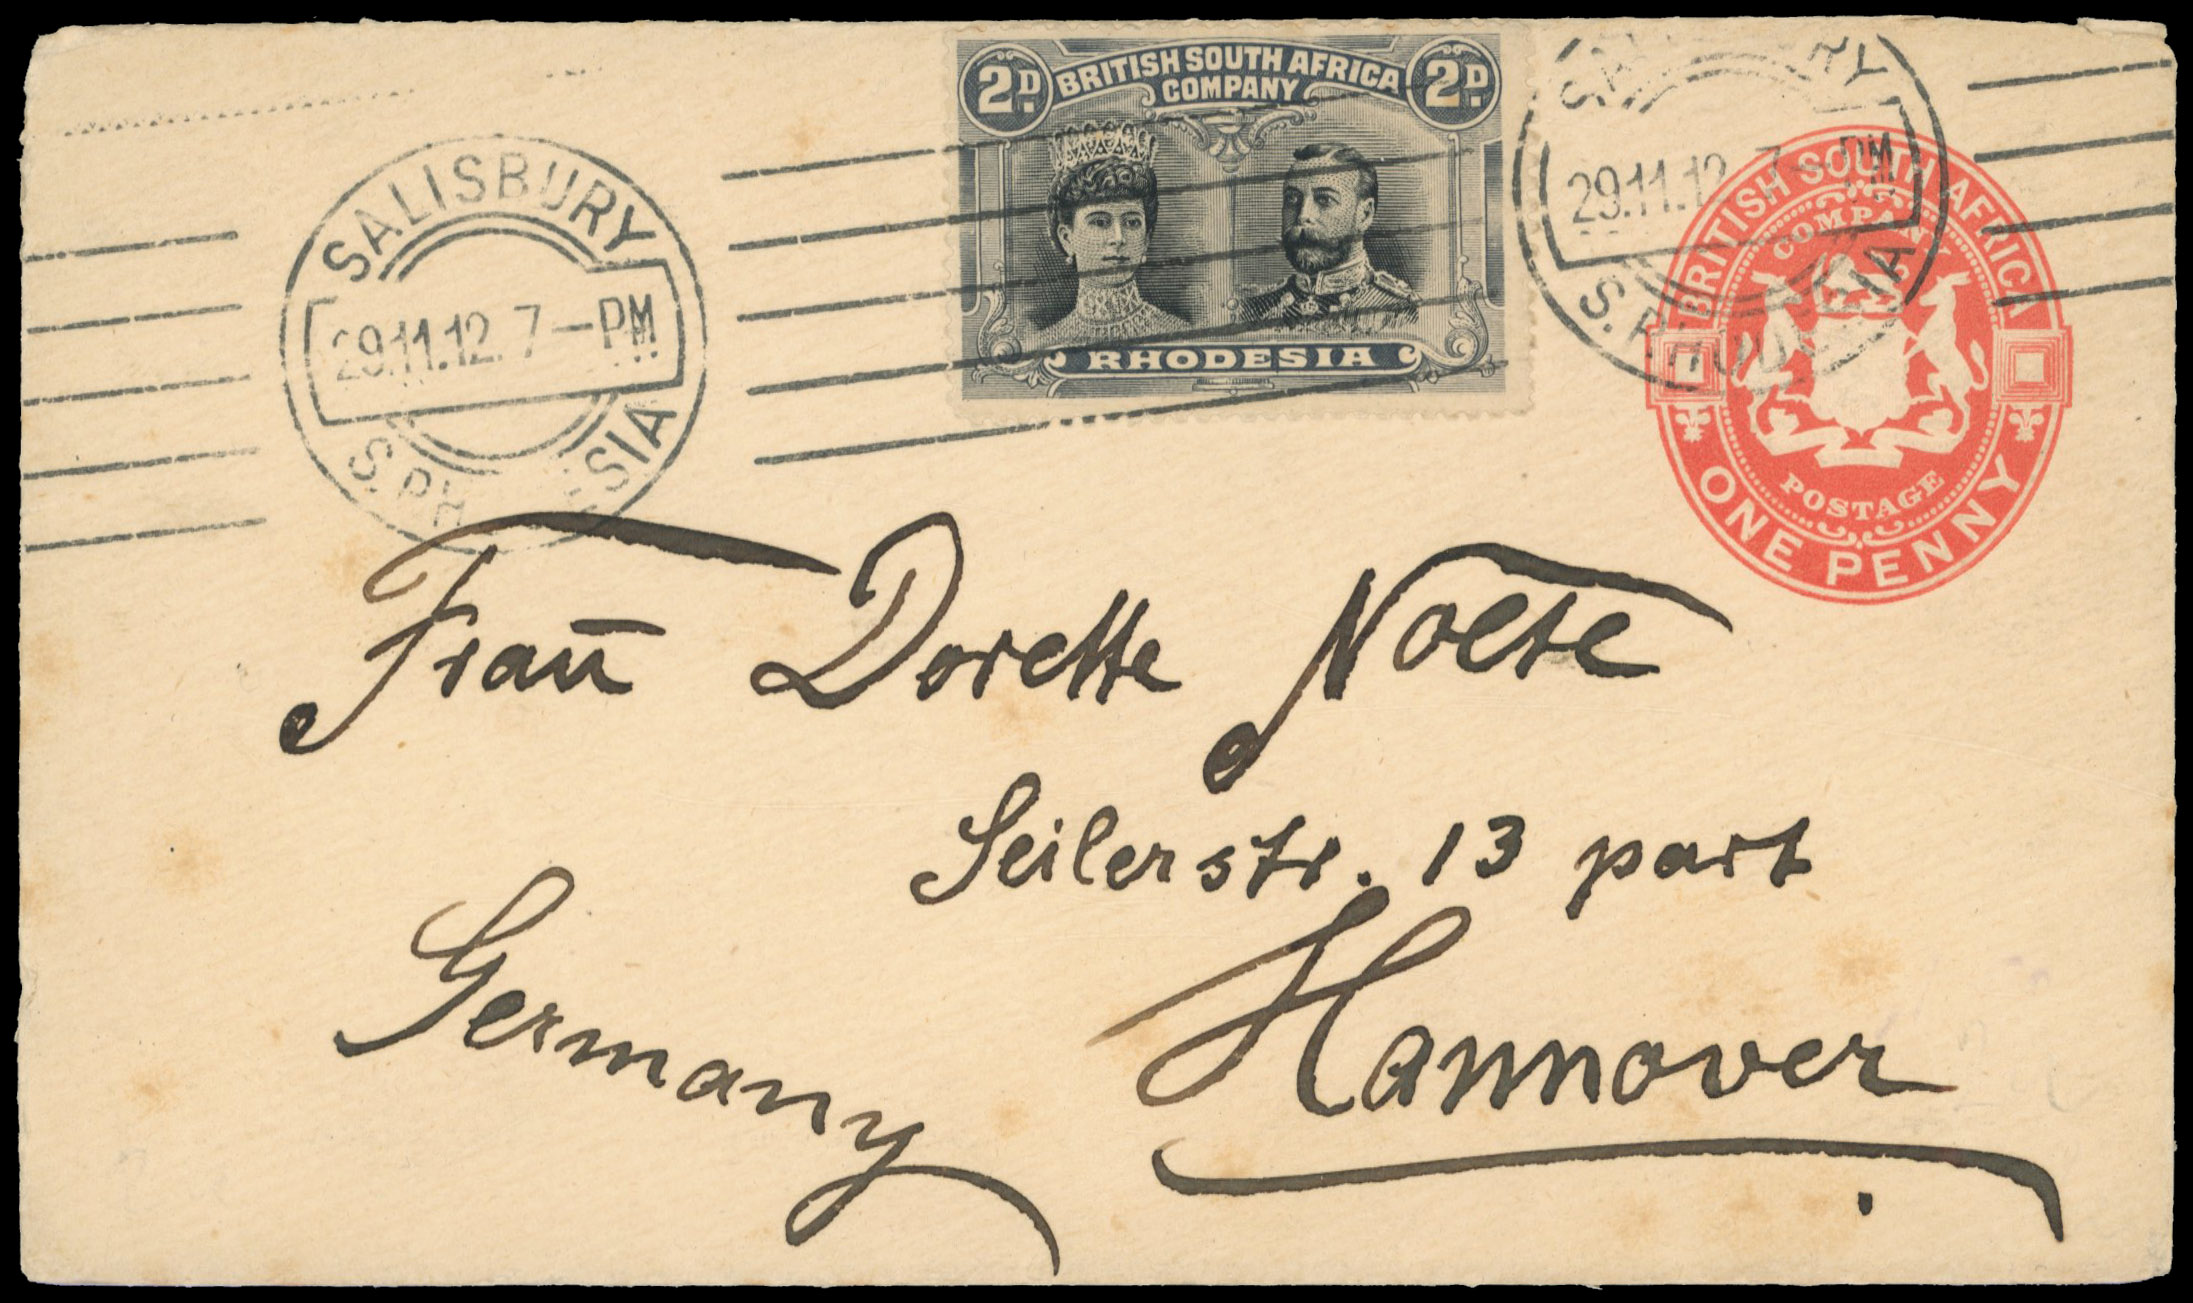 SALISBURY
29.11.12. 7–PM
S. RHODESIA
2D. BRITISH SOUTH AFRICA 2D.
COMPANY
RHODESIA
SALISBURY
29.11.12. 7–PM
S. RHODESIA
BRITISH SOUTH AFRICA
COMPANY
POSTAGE
ONE PENNY
Frau Dorette Nolte
Seilerstr. 13 part
Hannover
Germany